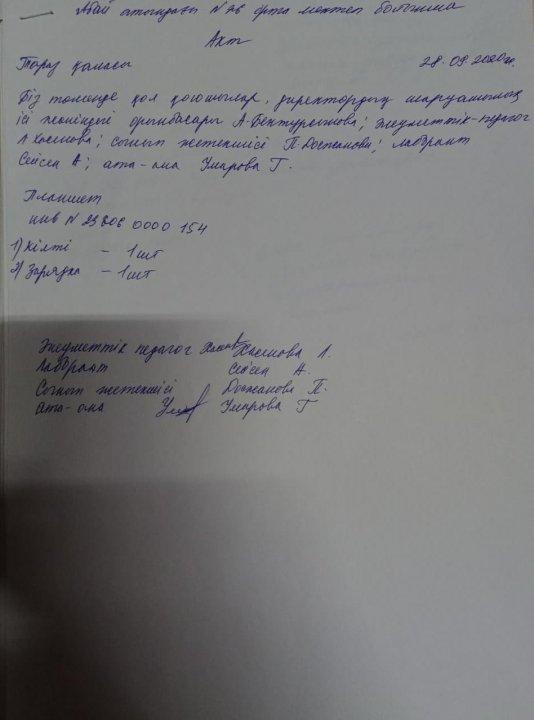 Абай атындағы N 26 орта мектеп бойынша
Акт
Тараз қаласы 28.09.2020ж.
Біз төменде қол қоюшылар, директордың шаруашылық
ісі жөніндегі орынбасары А.Бектурсынова; Әлеуметтік-педагог
Л Хасенова; Сынып жетекшісі П.Досжанова; лаборант
Сейсен А; ата-ана Умарова Г.
Планшет
инв N 23806 0000 154
1) Кілті - 1 шт
2) Зарядка - 1 шт
Әлеуметтік педагог Хасенова Л.
Лаборант Сейсен А.
Сынып жетекшісі Досжанова П.
Ата-ана Умарова Г